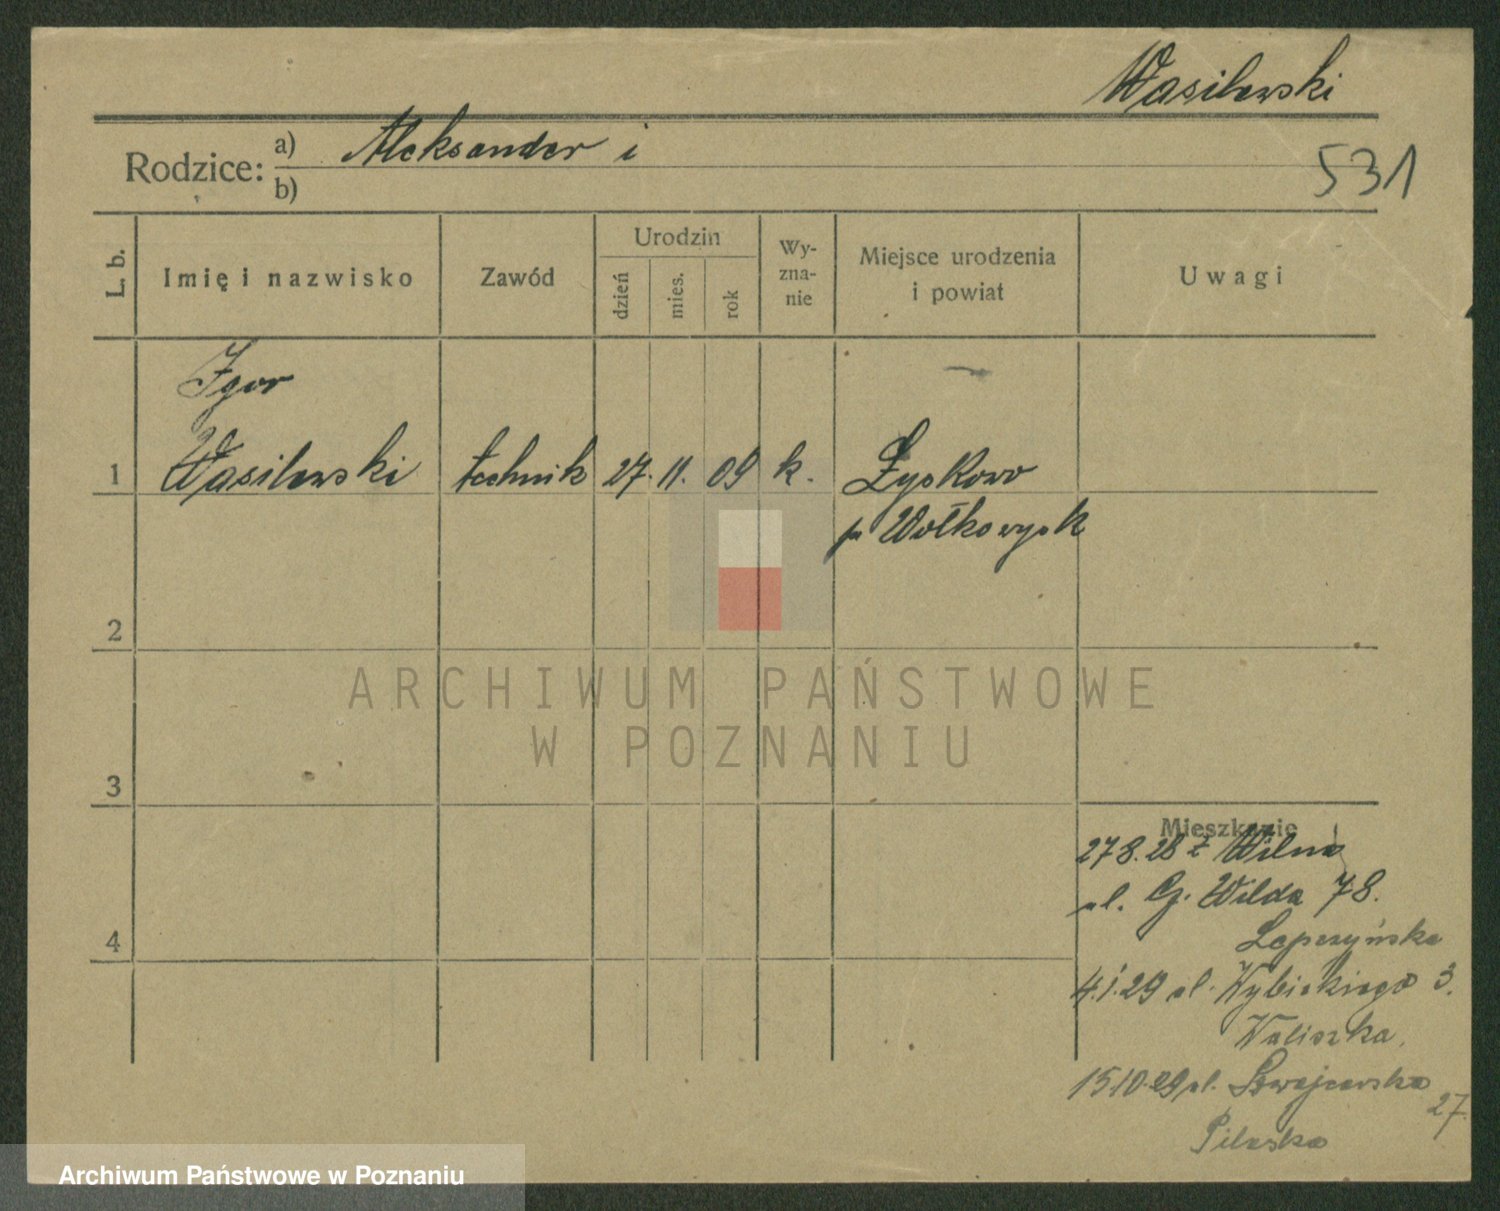 Wasilewski
Rodzice: a) Aleksander i
b)
531
L. b.
Imię i nazwisko
Zawód
Urodzin
dzień
mies.
rok
Wy-
zna-
nie
Miejsce urodzenia
i powiat
Uwagi
Igor
1 Wasilewski technik 27. 11. 09 k. Łyskowo
p Wołkowysk
2
3
4
Mieszkanie
27 8. 28 z Wilna
ul. G. Wilda 78.
Lepczyńska
4.1.29 ul. Wybickiego 3.
Waliszka.
15.10.29 ul. Szwajcarska
27.
Pilaska
ARCHIWUM PAŃSTWOWE
W POZNANIU
Archiwum Państwowe w Poznaniu